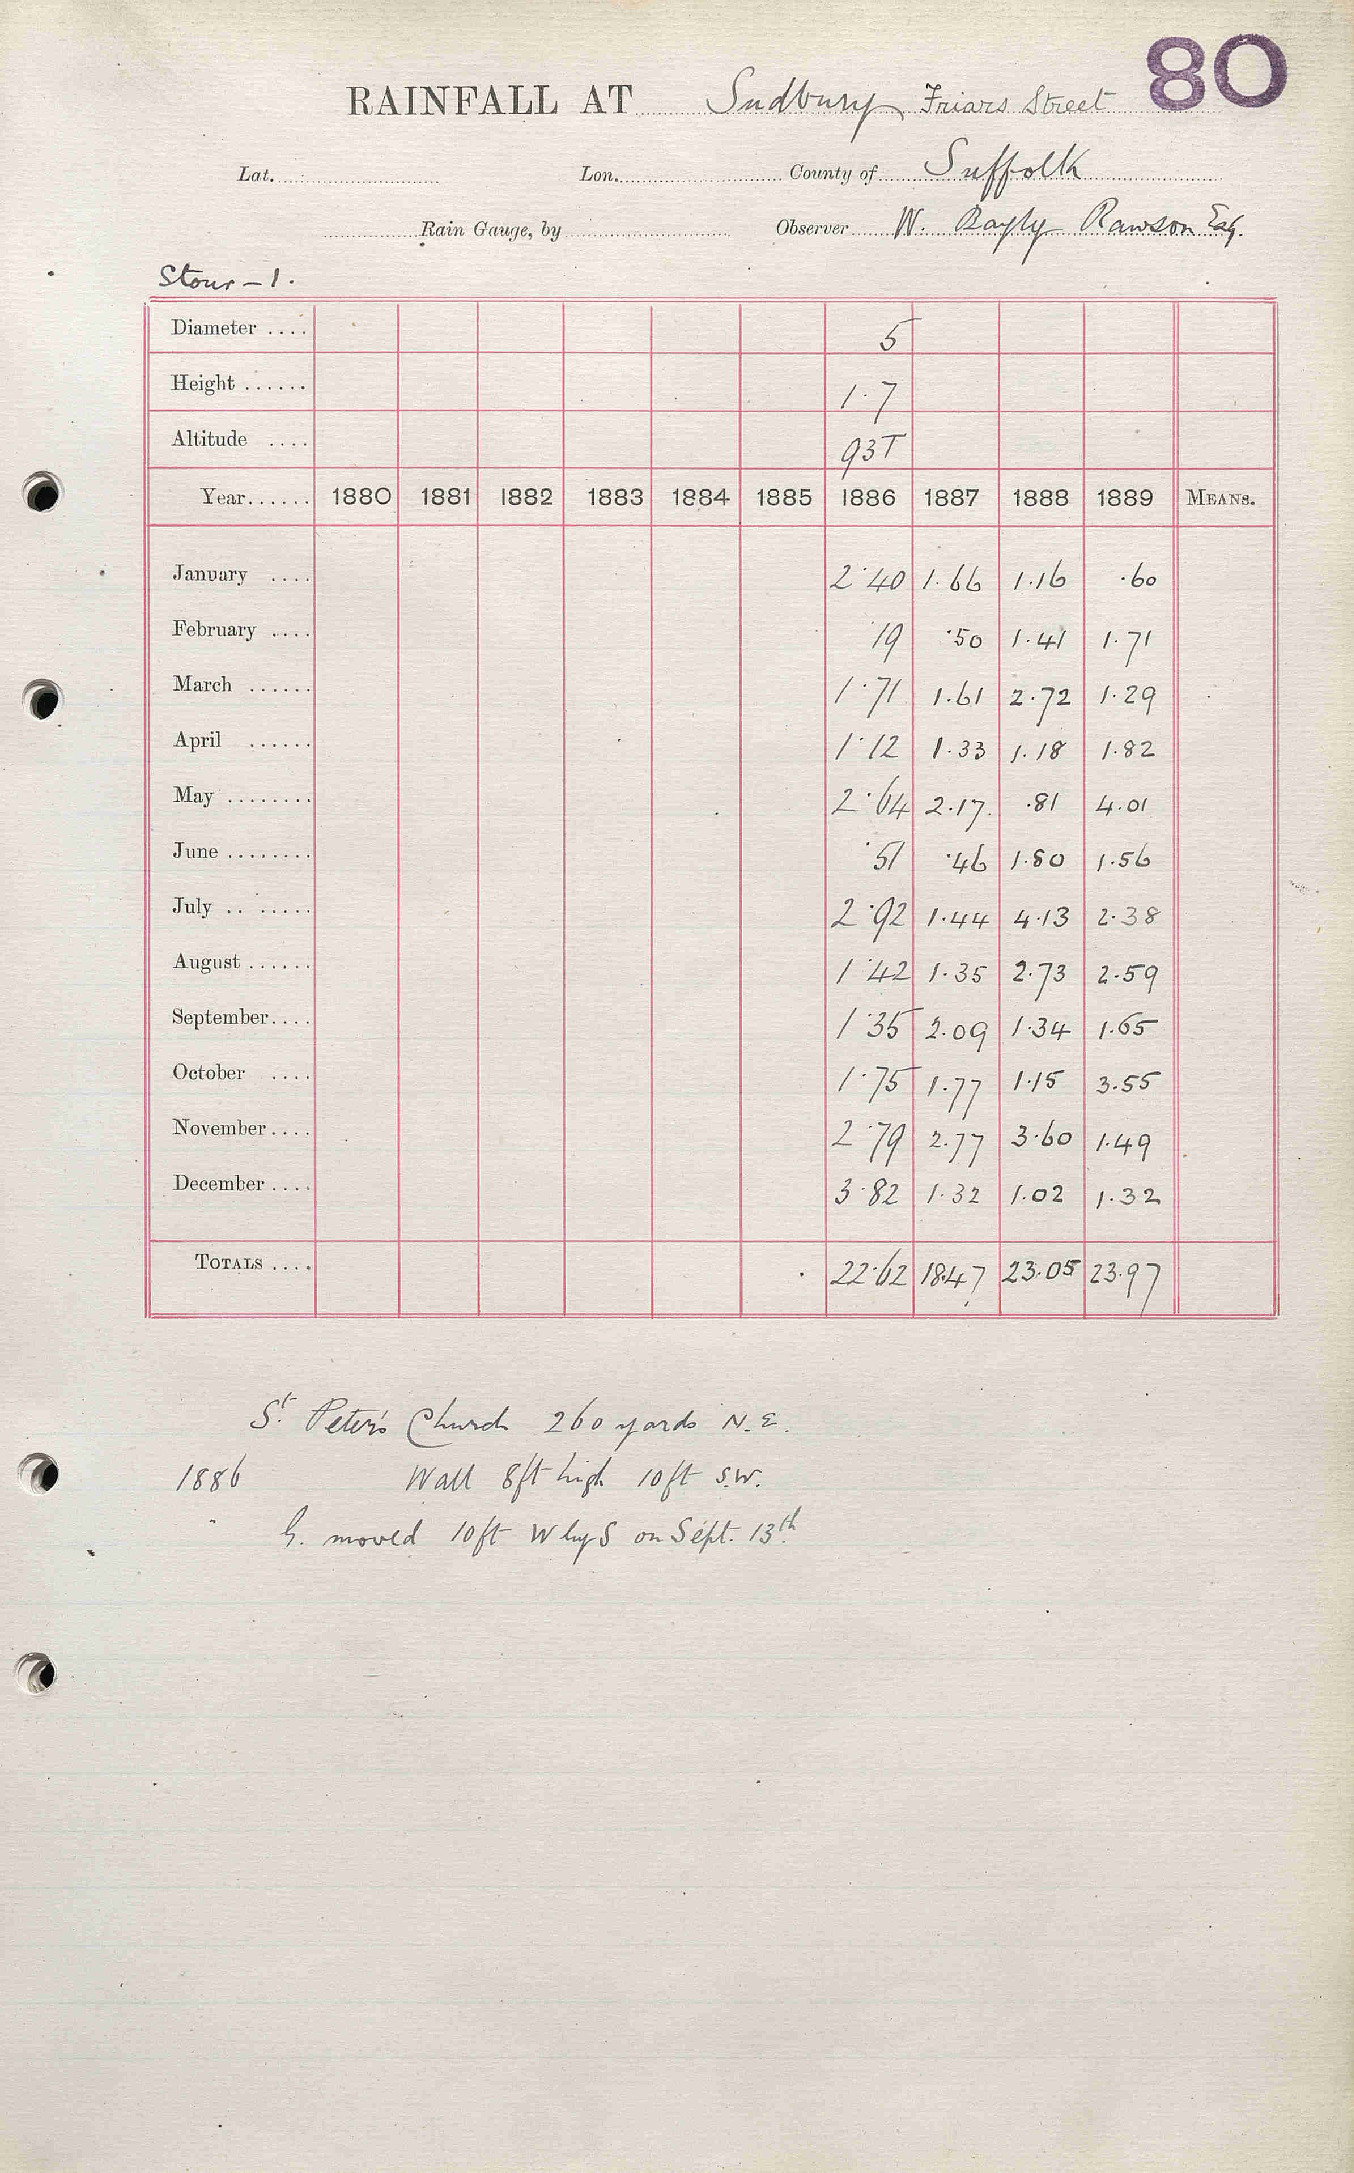 80
RAINFALL AT Sudbury Friars Street
Lat. Lon. County of Suffolk
Rain Gauge, by Observer W. Bayly Rawson Esq.
Stour - 1.
Diameter .... 5
Height ...... 1.7
Altitude .... 93T
Year...... 1880 1881 1882 1883 1884 1885 1886 1887 1888 1889 MEANS.
January .... 2.40 1.66 1.16 .60
February .... .19 .50 1.41 1.71
March ...... 1.71 1.61 2.72 1.29
April ...... 1.12 1.33 1.18 1.82
May ........ 2.64 2.17 .81 4.01
June ........ .51 .46 1.80 1.56
July .. ..... 2.92 1.44 4.13 2.38
August ...... 1.42 1.35 2.73 2.59
September.... 1.35 2.09 1.34 1.65
October .... 1.75 1.77 1.15 3.55
November.... 2.79 2.77 3.60 1.49
December .... 3.82 1.32 1.02 1.32
TOTALS .... 22.62 18.47 23.05 23.97
St. Peter's Church 260 yards N.E.
1886 Wall 8ft high 10ft S.W.
" G. moved 10ft W by S on Sept. 13th